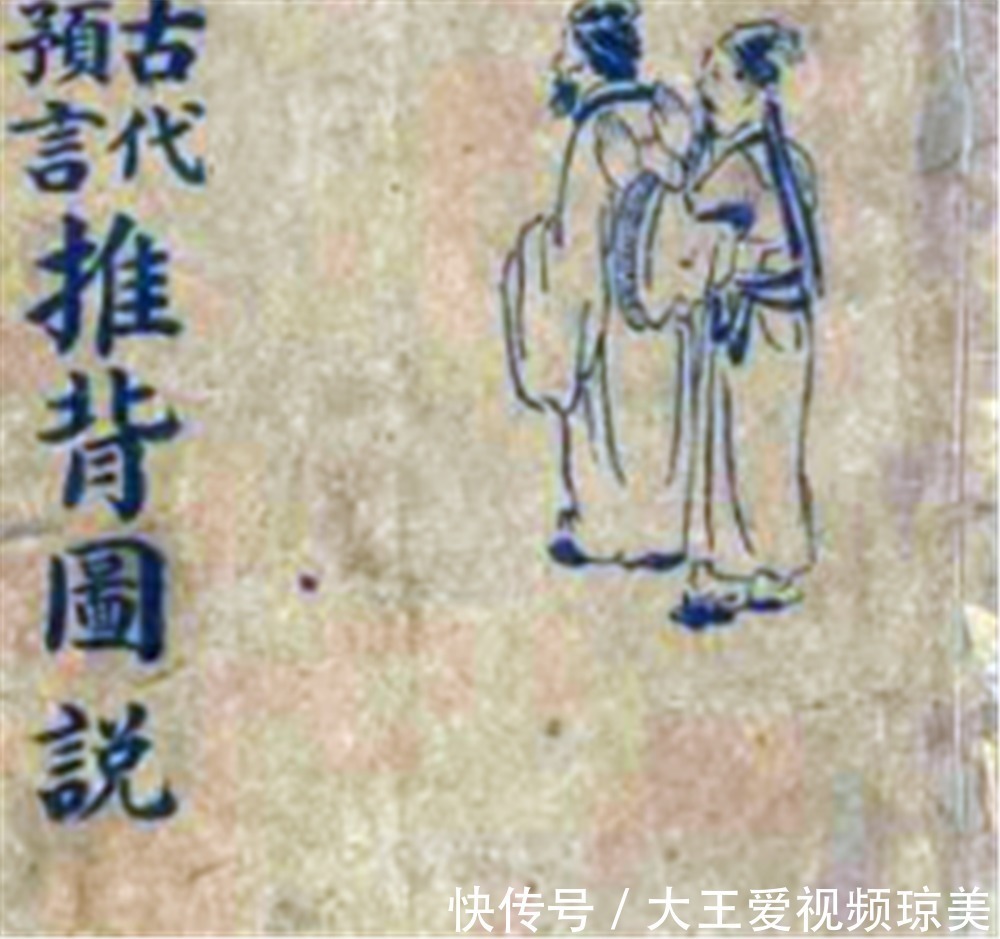 古代
預言
推背圖説
快传号 / 大王爱视频琼美